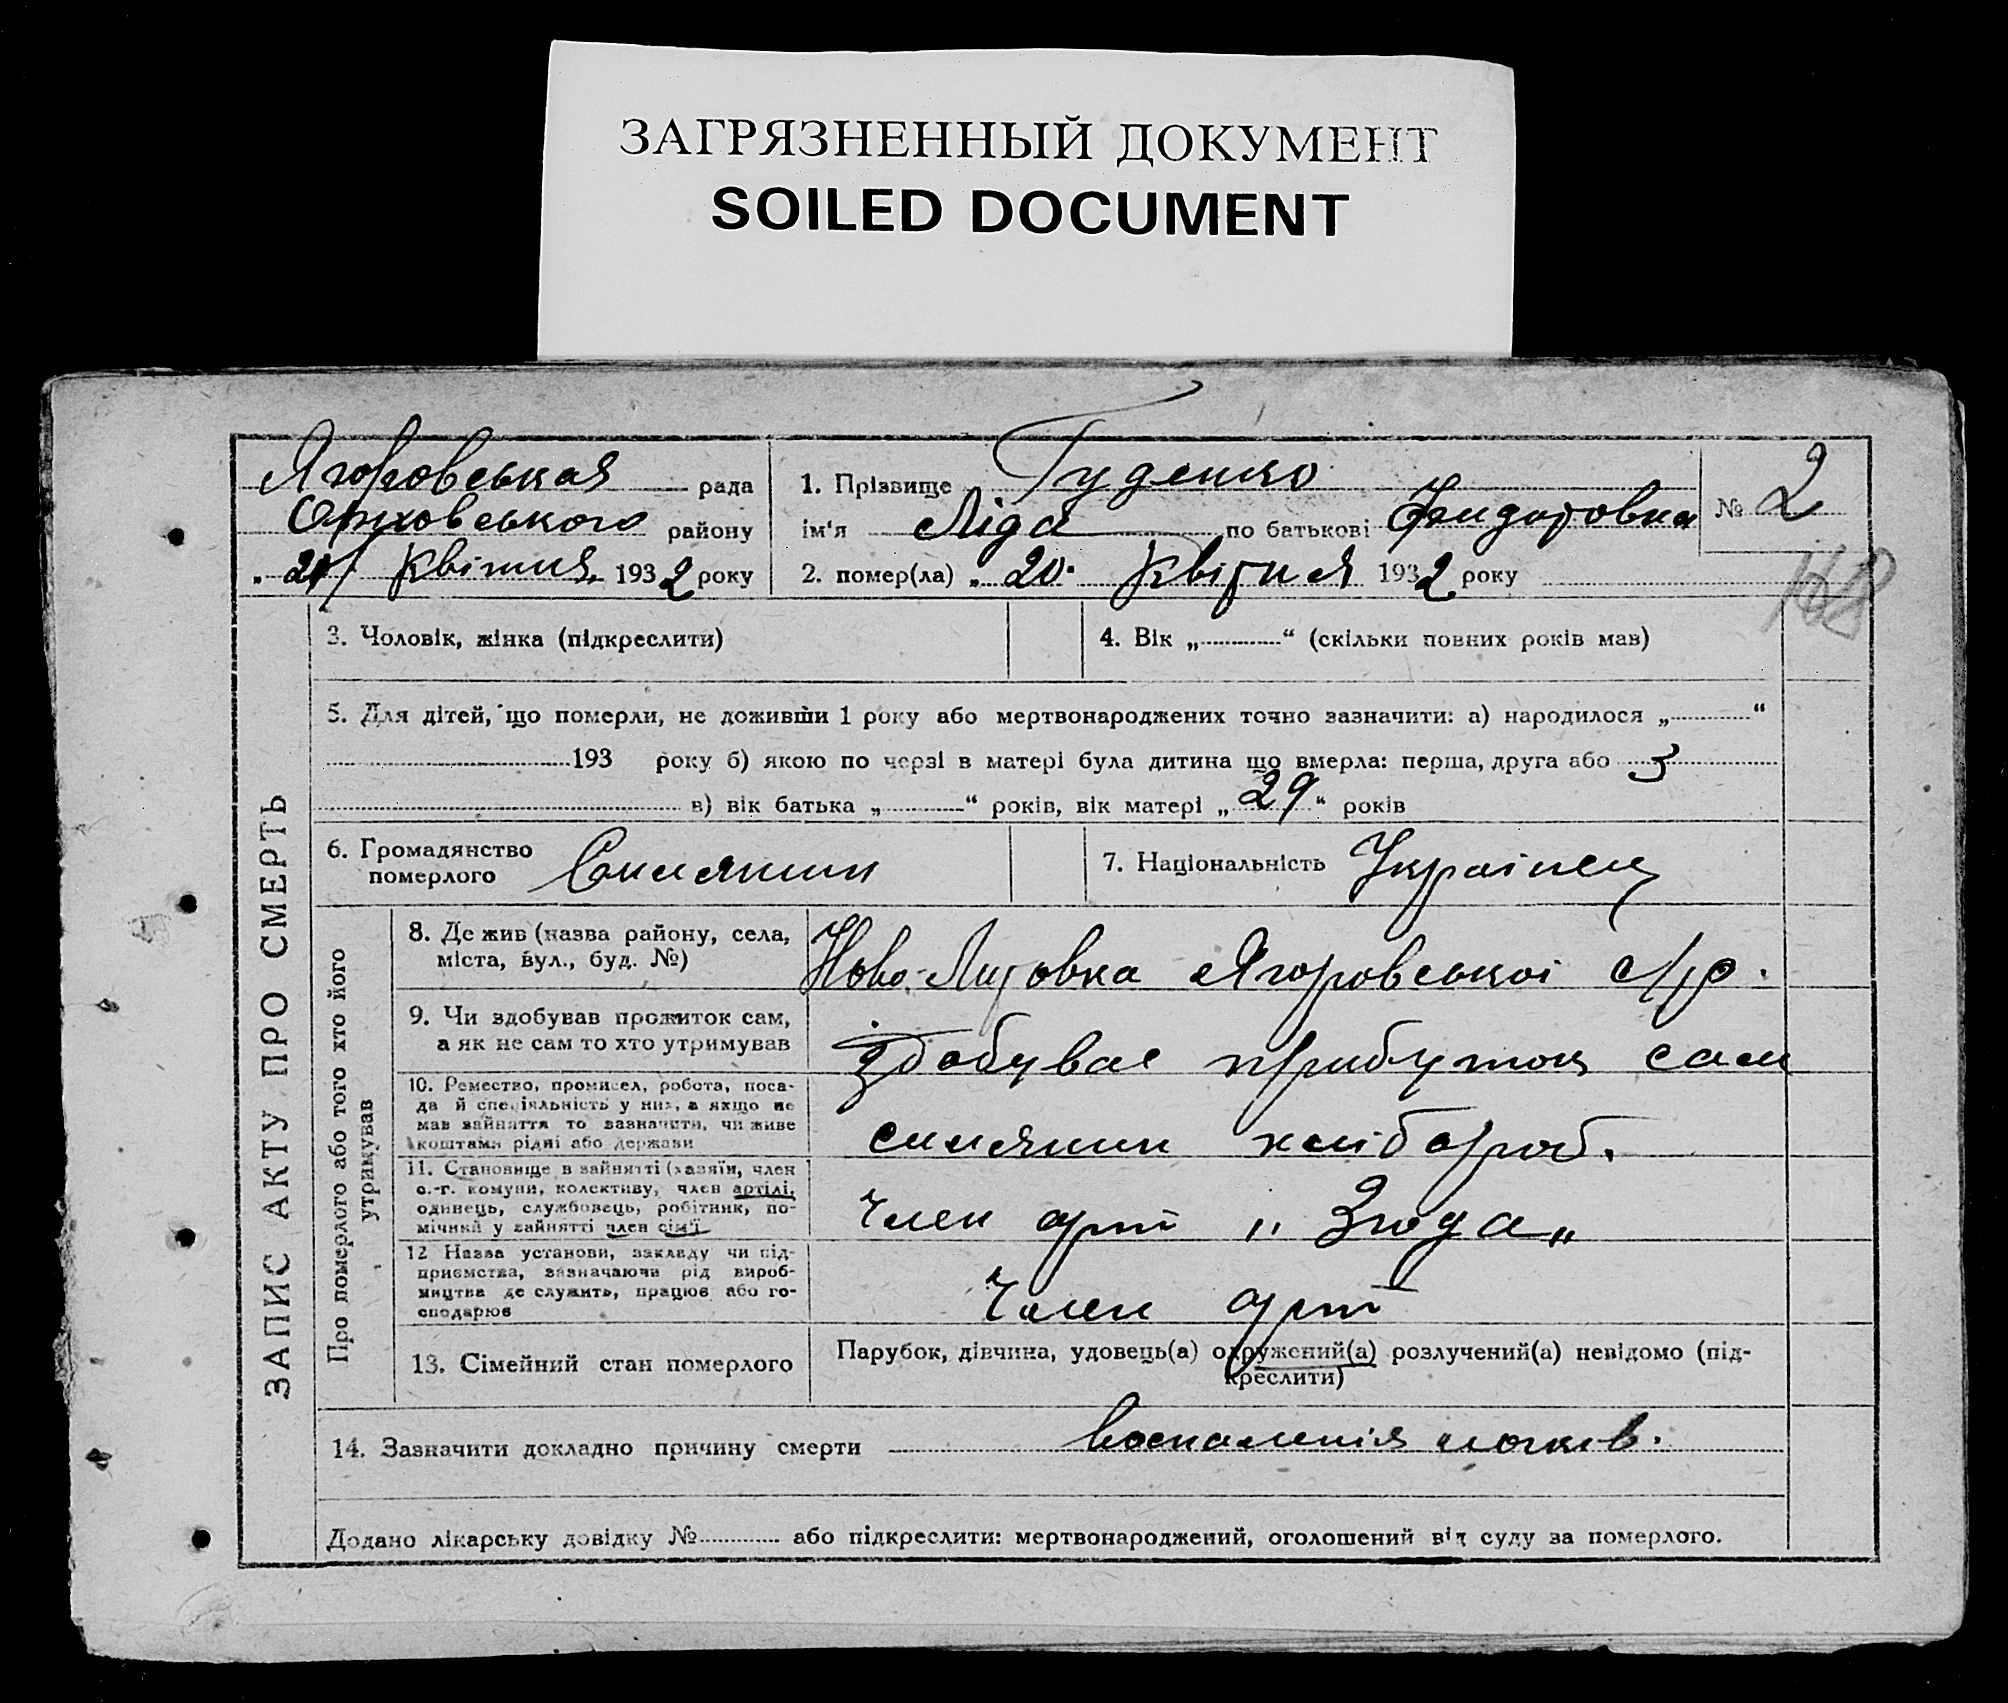 ЗАГРЯЗНЕННЫЙ ДОКУМЕНТ
SOILED DOCUMENT
Ягоровськая рада
Оріховського району
21/ Квітня 1932 року
1. Прізвище Гуденко
ім'я Ліда по батькові Фендоровна
2. помер(ла) „ 20. Квітня 1932 року
№ 2
168
ЗАПИС АКТУ ПРО СМЕРТЬ
3. Чоловік, жінка (підкреслити)
4. Вік „ “ (скільки повних років мав)
5. Для дітей, що померли, не доживши 1 року або мертвонароджених точно зазначити: а) народилося „ “
193 року б) якою по черзі в матері була дитина що вмерла: перша, друга або 3
в) вік батька „ “ років, вік матері „ 29 “ років
6. Громадянство
померлого Силянин
7. Національність Украінец
Про померлого або того хто його
утримував
8. Де жив (назва району, села,
міста, вул., буд. №)
Ново-Ягоровської с/р.
9. Чи здобував прожиток сам,
а як не сам то хто утримував
здобував прибуток сам
10. Ремество, промисел, робота, поса-
да й спеціяльність у них, а якщо не
мав зайняття то зазначити, чи живе
коштами рідні або держави
силянин хлібороб.
11. Становище в зайнятті (хазяїн, член
с.-г. комуни, колективу, член артілі,
одинець, службовець, робітник, по-
мічний у зайнятті член сім'ї
Член арт „ Згода „
12 Назва установи, закладу чи під-
приємства, зазначаючи рід вироб-
ництва де служить, працює або го-
сподарює
Член арт
13. Сімейний стан померлого
Парубок, дівчина, удовець(а) одружений(а) розлучений(а) невідомо (під-
креслити)
14. Зазначити докладно причину смерти воспаленія
Додано лікарську довідку № або підкреслити: мертвонароджений, оголошений від суду за померлого.